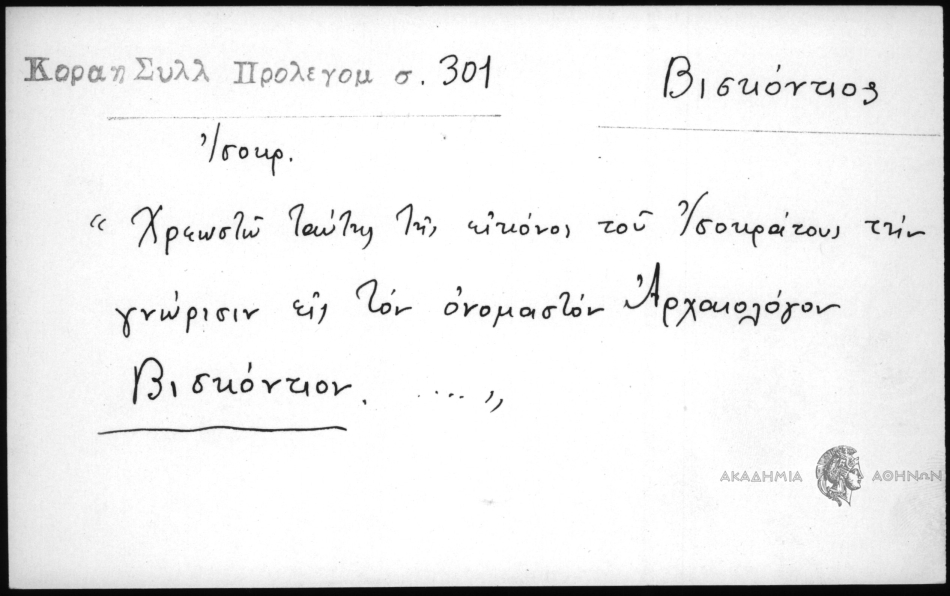 Κοραη Συλλ Προλεγομ σ. 301
Βισκόντιος
Ἰσοκρ.
“ Χρεωστῶ ταύτης τῆς εἰκόνος τοῦ Ἰσοκράτους τὴν
γνώρισιν εἰς τόν ὀνομαστόν Ἀρχαιολόγον
Βισκόντιον. .... „
ΑΚΑΔΗΜΙΑ ΑΘΗΝΩΝ